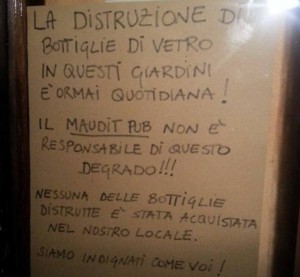 LA DISTRUZIONE DI
BOTTIGLIE DI VETRO
IN QUESTI GIARDINI
E' ORMAI QUOTIDIANA!
IL MAUDIT PUB NON E'
RESPONSABILE DI QUESTO
DEGRADO!!!
NESSUNA DELLE BOTTIGLIE
DISTRUTTE E' STATA ACQUISTATA
NEL NOSTRO LOCALE.
SIAMO INDIGNATI COME VOI!